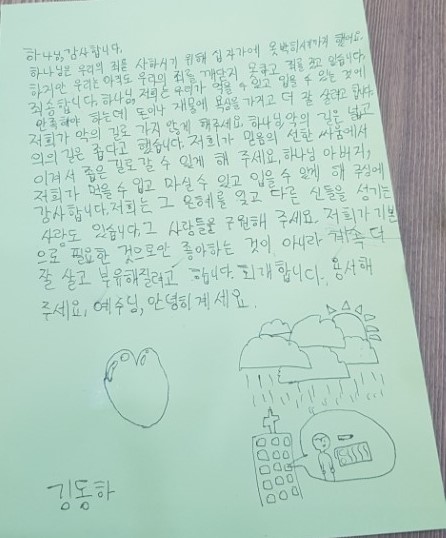 하나님, 감사합니다.
하나님은 우리의 죄를 사하시기 위해 십자가에 못박히시기까지 했어요.
하지만 우리는 아직도 우리의 죄를 깨닫지 못하고 죄를 짓고 있습니다.
죄송합니다. 하나님, 저희는 우리가 먹을 수 있고 입을 수 있는 것에
만족해야 하는데 돈이나 재물에 욕심을 가지고 더 잘 살려고 합니다.
저희가 악의 길로 가지 않게 해주세요. 하나님 악의 길은 넓고
의의 길은 좁다고 했습니다. 저희가 믿음의 선한 싸움에서
이겨서 좁은 길로 갈 수 있게 해 주세요. 하나님 아버지,
저희가 먹을 수 있고 마실 수 있고 입을 수 있게 해 주심에
감사합니다. 저희는 그 은혜를 잊고 다른 신들을 섬기는
사람도 있습니다. 그 사람들을 구원해 주세요. 저희가 기본
으로 필요한 것으로만 좋아하는 것이 아니라 계속 더
잘 살고 부유해질려고 합니다. 회개합니다. 용서해
주세요, 예수님, 안녕히계세요.
김동하